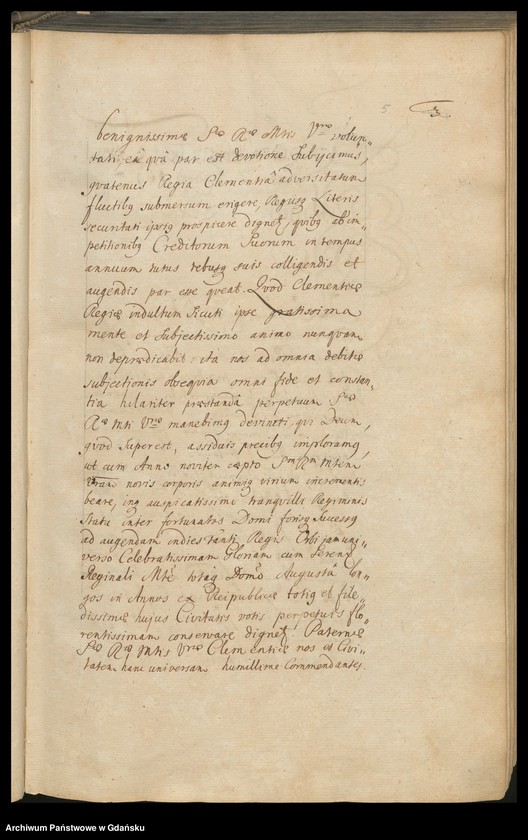 5
3
benignissimæ Sæ Ræ Mtis Vræ volun=
tati, eâ quâ par est devotione Subijcimus,
quatenus Regia Clementiâ adversitatum
fluctibq submersum erigere, Regijsq Literis
securitati ipsiq prospicere dignetr, quibq ab im=
petitionibq Creditorum Suorum in tempus
annuum tutus rebusq suis colligendis et
augendis par esse queat. Quod Clementiæ
Regiæ indultum Sicuti ipse gratissima
mente et Subjectissimo animo nunquam
non deprædicabit, ita nos ad omnia debitæ
subjectionis obsequia omni fide et constan=
tia hilariter præstanda perpetuum Sæ
Ræ Mti Vræ manebimq devincti, qui Deum,
quod Superest, assiduis precibq imploramq,
ut cum Anno noviter cæpto Sm Rm Mtem
Vram novis corporis animiq virium incrementis
beare, inq auspicatissimo tranquilli Regiminis
Statu inter fortunatos Domi forisq Sucessq
ad augendam indies tanti Regis Orbi jam uni=
verso Celebratissimam Gloriam cum Serenma
Reginali Mte totaq Domo Augustâ lon=
gos in Annos ex Reipublicæ totiq et fide=
lissimæ hujus Civitatis votis perpetuis flo=
rentissimam conservare dignetr. Paternæ
Sæ Ræ Mtis Vræ Clementiæ nos et Civi=
tatem hanc universam humillime Commendantes.
Archiwum Państwowe w Gdańsku